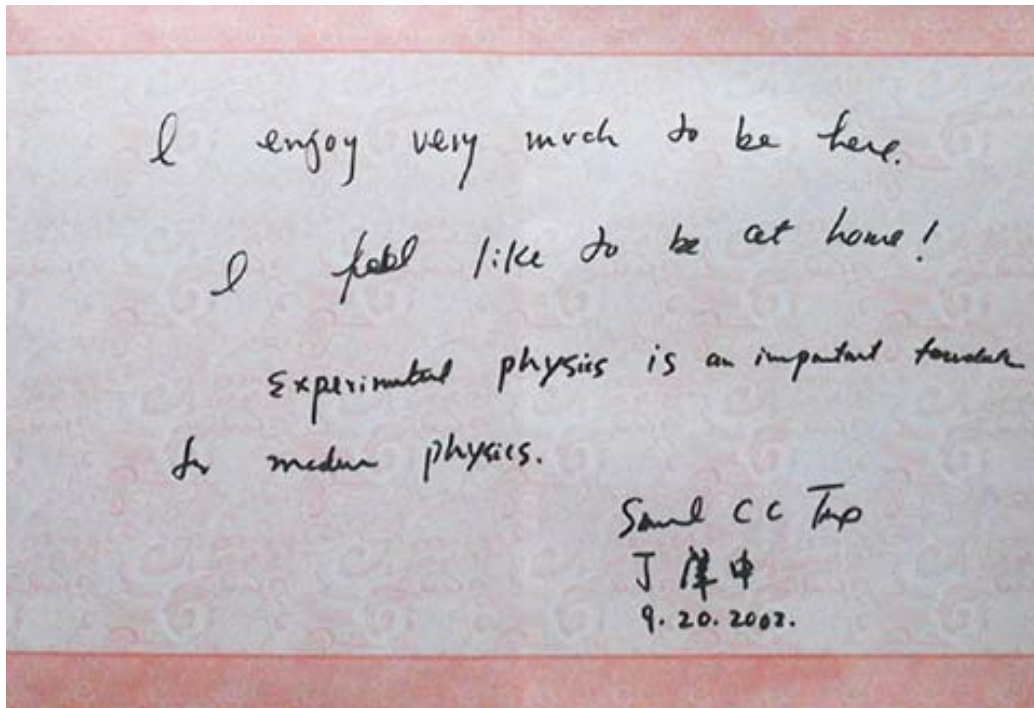 I enjoy very much to be here.
I feel like to be at home!
Experimental physics is an important foundation
for modern physics.
Samuel C C Ting
丁肇中
9.20.2002.